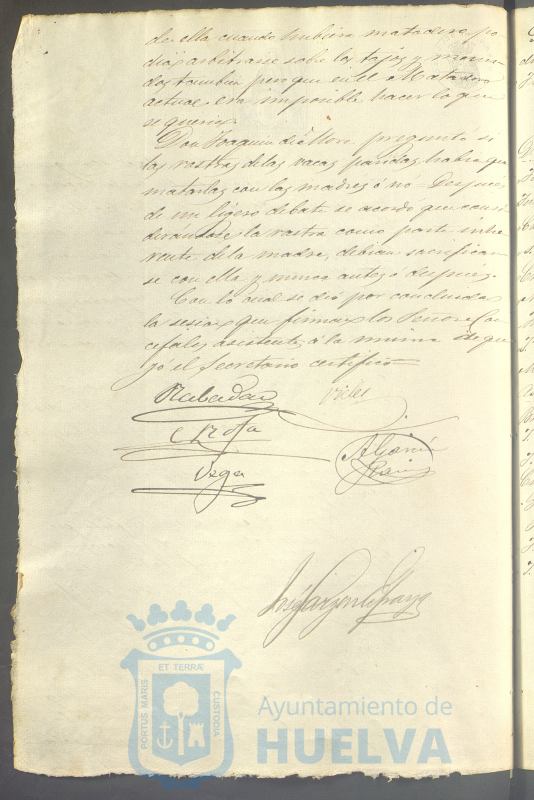 de ella cuando hubiera matadero, po
día arbitrarse sobre los tajos y
dos tambien porque en el Matadero
actual era imposible hacer lo que
se quería.
Don Joaquin de Mora preguntó si
las rastras de las vacas paridas, habia que
matarlas con las madres ó no. Despues
de un ligero debate se acordó que consi
derándose la rastra como parte inhe
rente de la madre, debian sacrificar
se con ella y nunca antes ó despues.
Con lo cual se dió por concluida
la sesion que firman los Señores Con
cejales asistentes á la misma de que
yo el Secretario certifico
Rabadan
Vega
PORTUS MARIS ET TERRÆ CUSTODIA
Ayuntamiento de
HUELVA